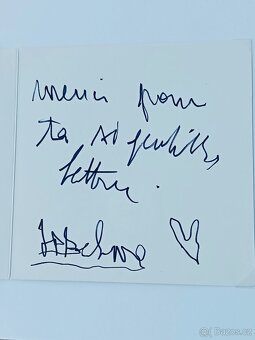 merci pour
ta si gentille
lettre.
Bazos.cz